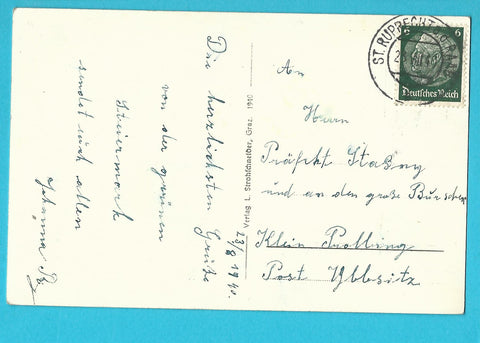 Die herzlichsten Grüße
von der grünen
Steiermark
sendet euch allen
Johanna
23/8 1940.
Verlag L. Strohschneider, Graz. 1940
ST. RUPRECHT
6 6
Deutsches Reich
An
Herrn
Präfekt Stasny
und an den große Burschen
Klein Prolling
Post Ybbsitz